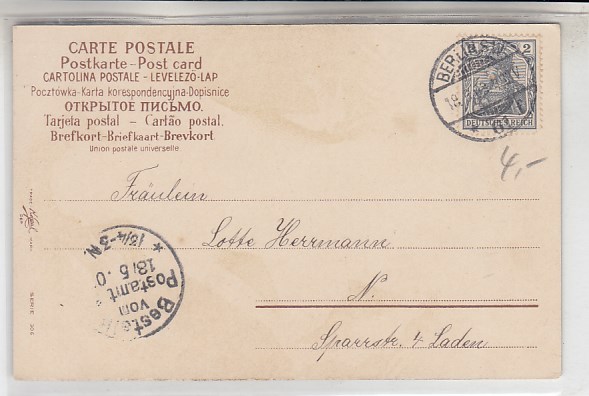 CARTE POSTALE
Postkarte - Post card
CARTOLINA POSTALE - LEVELEZÖ-LAP
Pocztówka-Karta korespondencyjna-Dopisnice
ОТКРЫТОЕ ПИСЬМО.
Tarjeta postal - Cartão postal.
Brefkort-Briefkaart-Brevkort
Union postale universelle
2
DEUTSCHES REICH
BERLIN S.W.
4,-
Fräulein
Lotte Herrmann
N.
Sparrstr. 4 Laden
Bestellt
vom
Postamt
18/5.0
*3/4-3N.*
SERIE